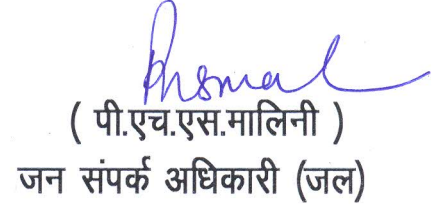 ( पी.एच.एस.मालिनी )
जन संपर्क अधिकारी (जल)